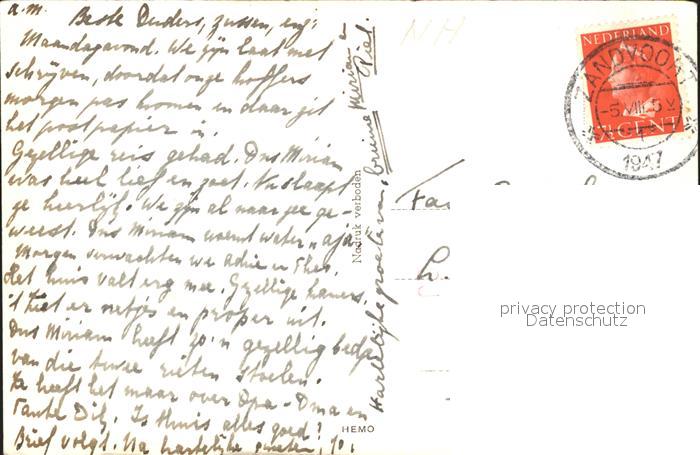 a.m. Beste Ouders, zussen, enz:
Maandagavond. We zijn laat met
schrijven, doordat onze koffers
morgen pas komen en daar zit
het postpapier in.
Gezellige reis gehad. Ons Miriam
was heel lief en zoet. Nu slaapt
ze heerlijk. We zijn al naar zee ge-
weest. Ons Miriam noemt water "
Morgen verwachten we adie en Thei.
Het huis valt erg mee. Gezellige kamers.
't Ziet er netjes en proper uit.
Ons Miriam heeft zo'n gezellig bedje
van die twee rieten stoelen.
Ze heeft het maar over Opa - Oma en
Tante Dily. Is thuis alles goed?
Brief volgt. Na hartelijke groeten, Jo,
Hartelijke groeten, bruine Miriam en
Piet.
Nadruk verboden
HEMO
NH
NEDERLAND
7½ CENT
ZANDVOORT
-5.VIII.5
1947
privacy protection
Datenschutz